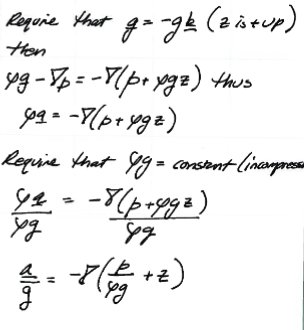 Require that g = -gk (z is + up)
then
ρg - ∇p = -∇(p + ρgz) thus
ρa = -∇(p + ρgz)
Require that ρg = constant (incompress
ρa/ρg = -∇(p + ρgz)/ρg
a/g = -∇(p/ρg + z)